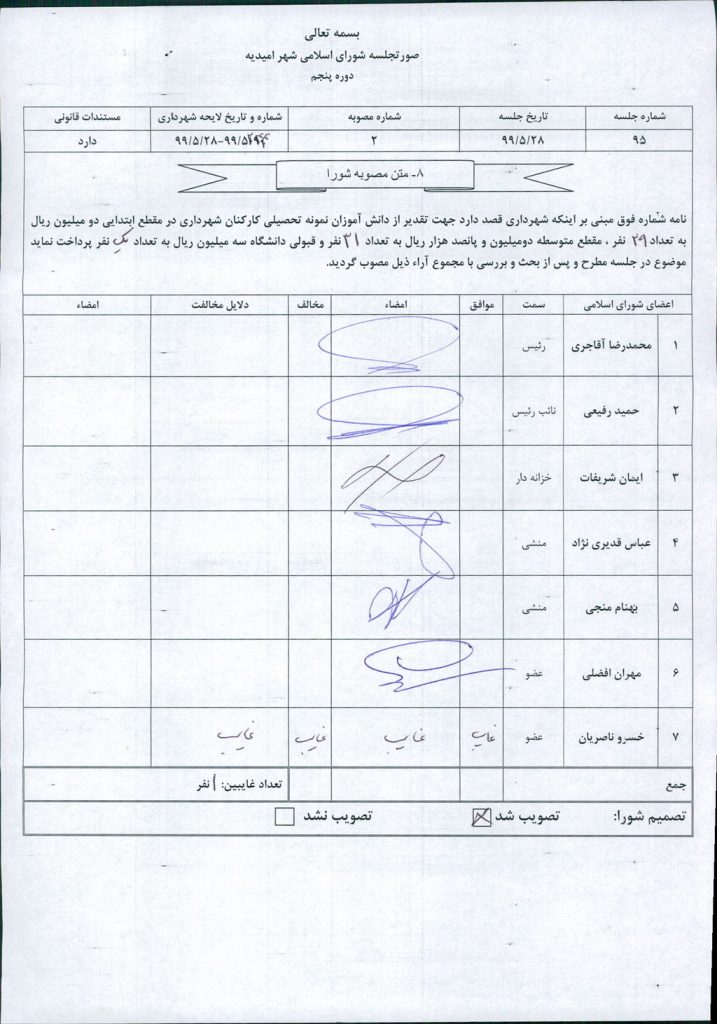 بسمه تعالی
صورتجلسه شورای اسلامی شهر امیدیه
دوره پنجم
شماره جلسه تاریخ جلسه شماره مصوبه شماره و تاریخ لایحه شهرداری مستندات قانونی
۹۵ ۹۹/۵/۲۸ ۲ ۹۹/۵/۲۸-۹۹/۵ دارد
۸- متن مصوبه شورا
نامه شماره فوق مبنی بر اینکه شهرداری قصد دارد جهت تقدیر از دانش آموزان نمونه تحصیلی کارکنان شهرداری در مقطع ابتدایی دو میلیون ریال
به تعداد ۲۹ نفر ، مقطع متوسطه دومیلیون و پانصد هزار ریال به تعداد ۲۱ نفر و قبولی دانشگاه سه میلیون ریال به تعداد یک نفر پرداخت نماید
موضوع در جلسه مطرح و پس از بحث و بررسی با مجموع آراء ذیل مصوب گردید.
اعضای شورای اسلامی سمت موافق امضاء مخالف دلایل مخالفت امضاء
۱ محمدرضا آقاجری رئیس
۲ حمید رفیعی نائب رئیس
۳ ایمان شریفات خزانه دار
۴ عباس قدیری نژاد منشی
۵ بهنام منجی منشی
۶ مهران افضلی عضو
۷ خسرو ناصریان عضو غایب غایب غایب غایب
جمع تعداد غایبین: ۱ نفر
تصمیم شورا: تصویب شد تصویب نشد